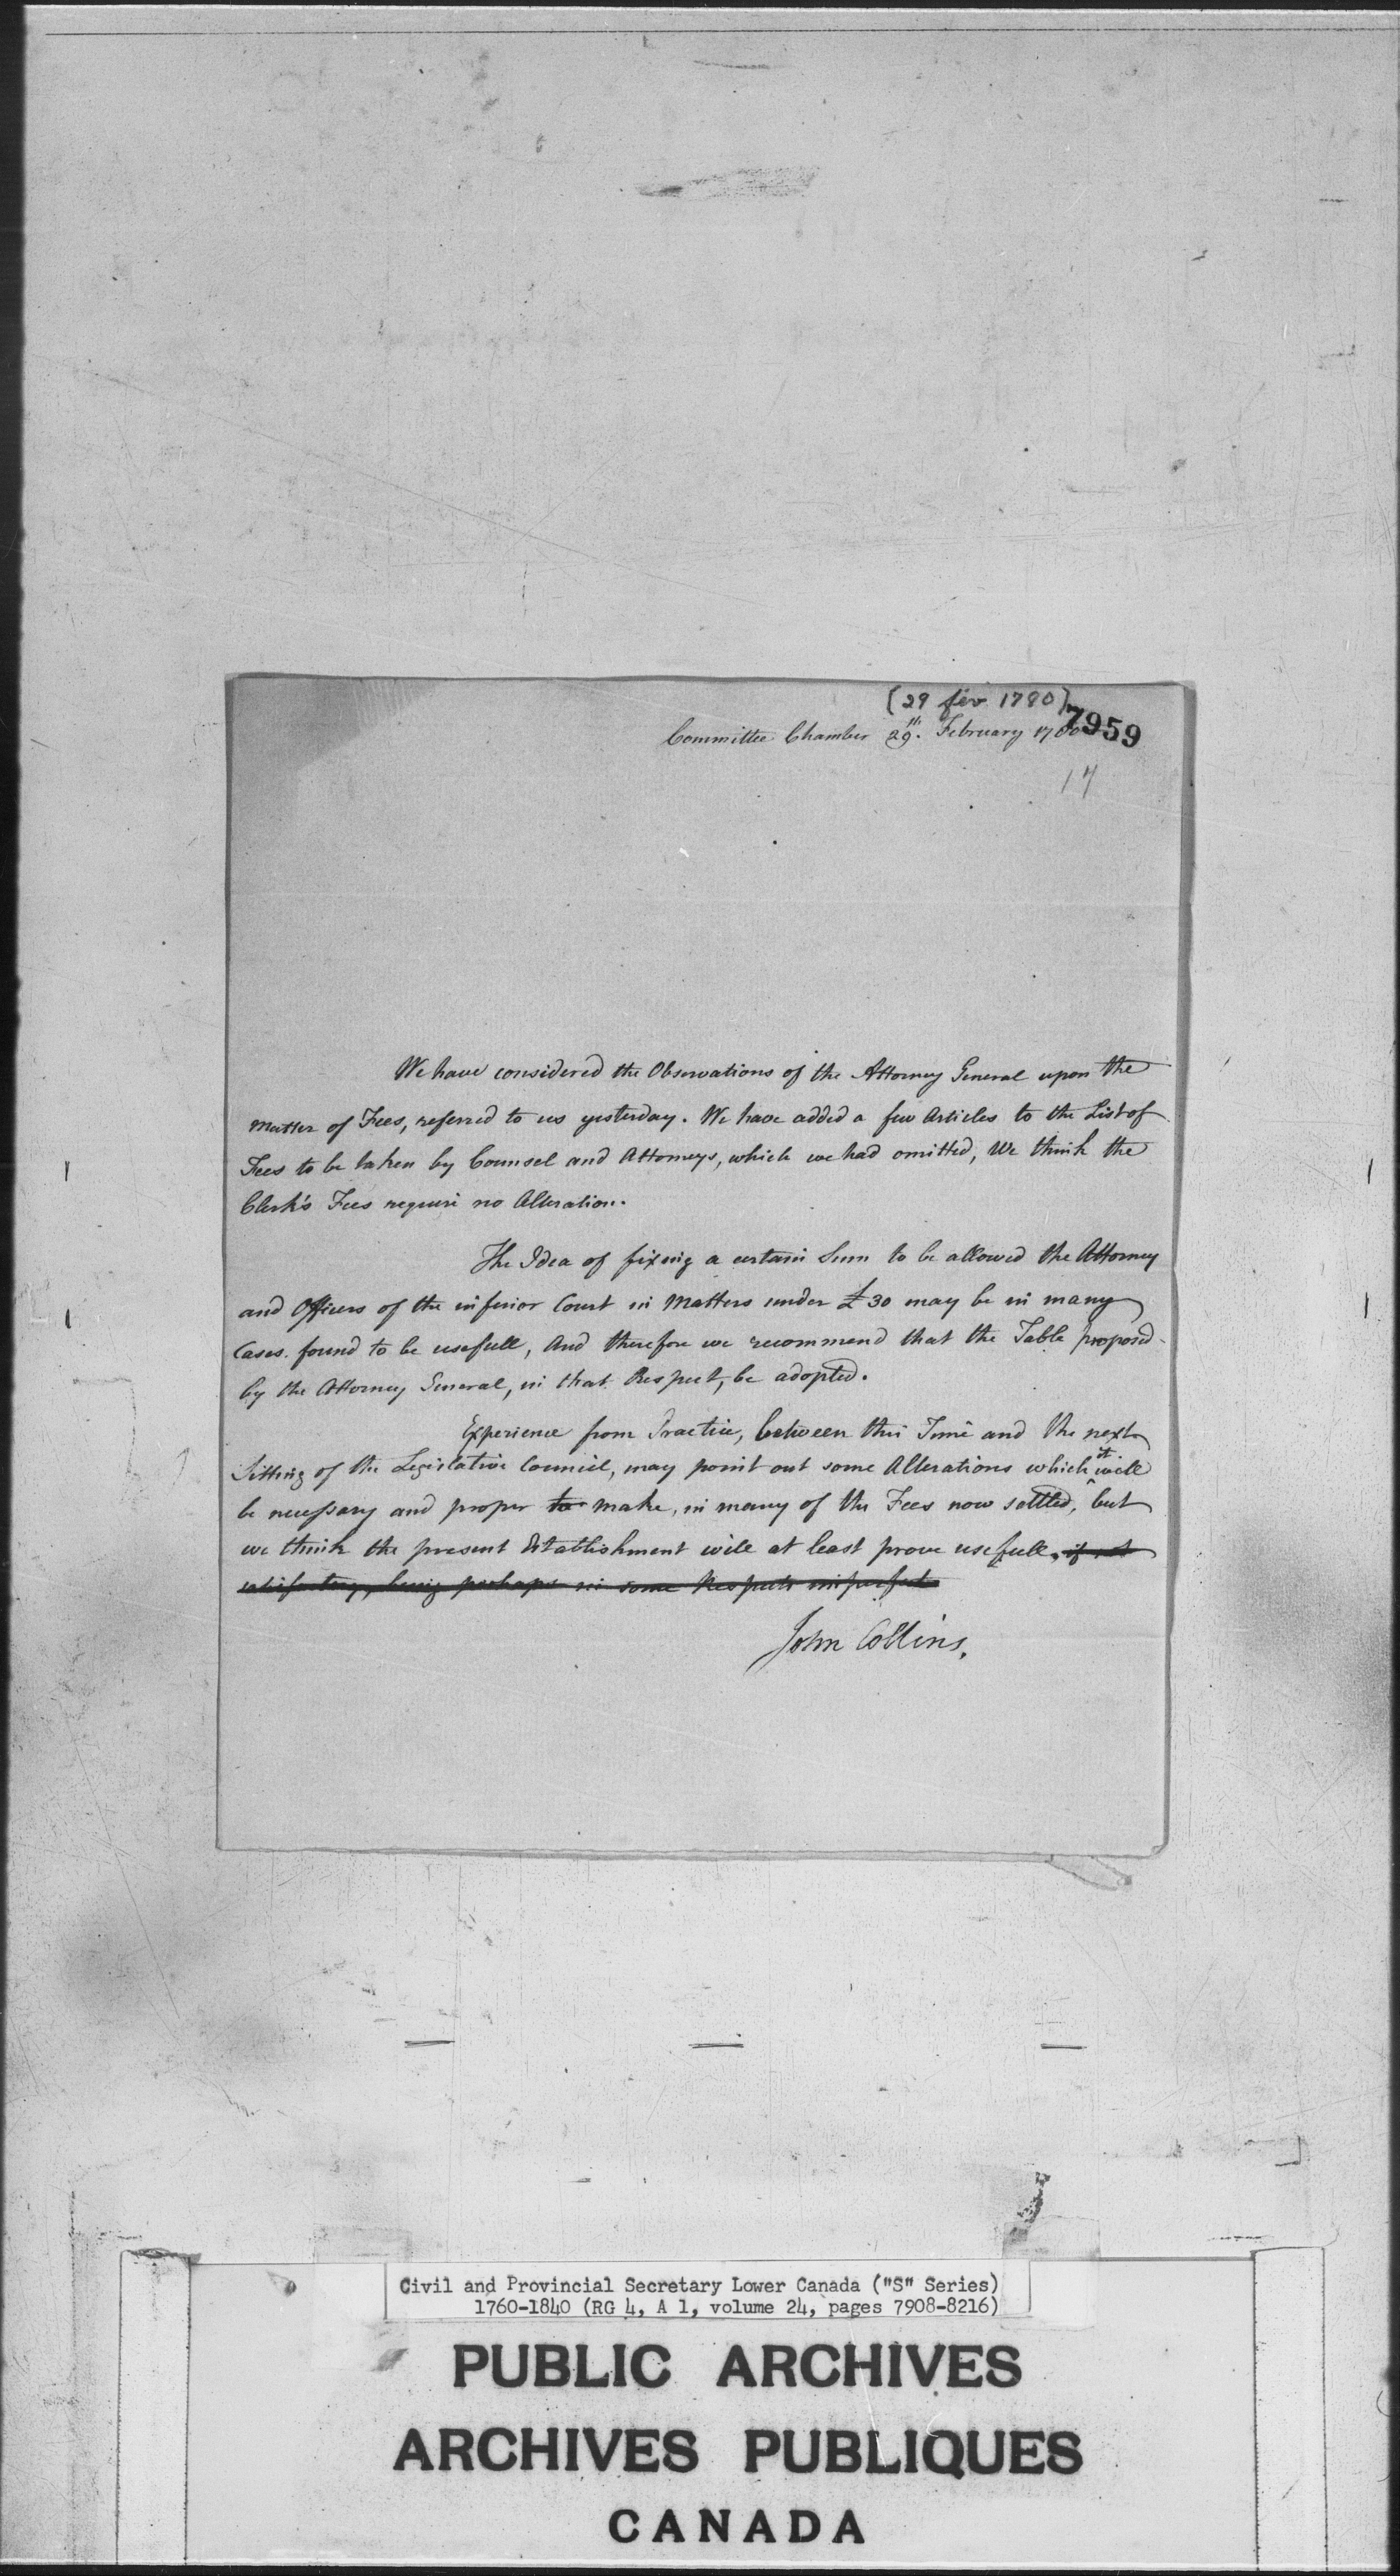 (29 fév 1780)
7959
Committee Chamber 29th. February 1780
17
We have considered the Observations of the Attorney General upon the
Matter of Fees, referred to us yesterday. We have added a few Articles to the List of
Fees to be taken by Counsel and Attorneys, which we had omitted, We think the
Clerk's Fees require no Alteration.
The Idea of fixing a certain Sum to be allowed the Attorney
and Officers of the inferior Court in Matters under £30 may be in many
Cases found to be usefull, And therefore we recommend that the Table proposed
by the Attorney General, in that Respect, be adopted.
Experience from Practice, between this Time and the next
Sitting of the Legislative Council, may point out some Alterations which it will
be necessary and proper to make, in many of the Fees now settled, but
we think the present Establishment will at least prove usefull, if not
satisfactory, being perhaps in some Respects imperfect
John Collins.
Civil and Provincial Secretary Lower Canada ("S" Series)
1760-1840 (RG 4, A 1, volume 24, pages 7908-8216)
PUBLIC ARCHIVES
ARCHIVES PUBLIQUES
CANADA